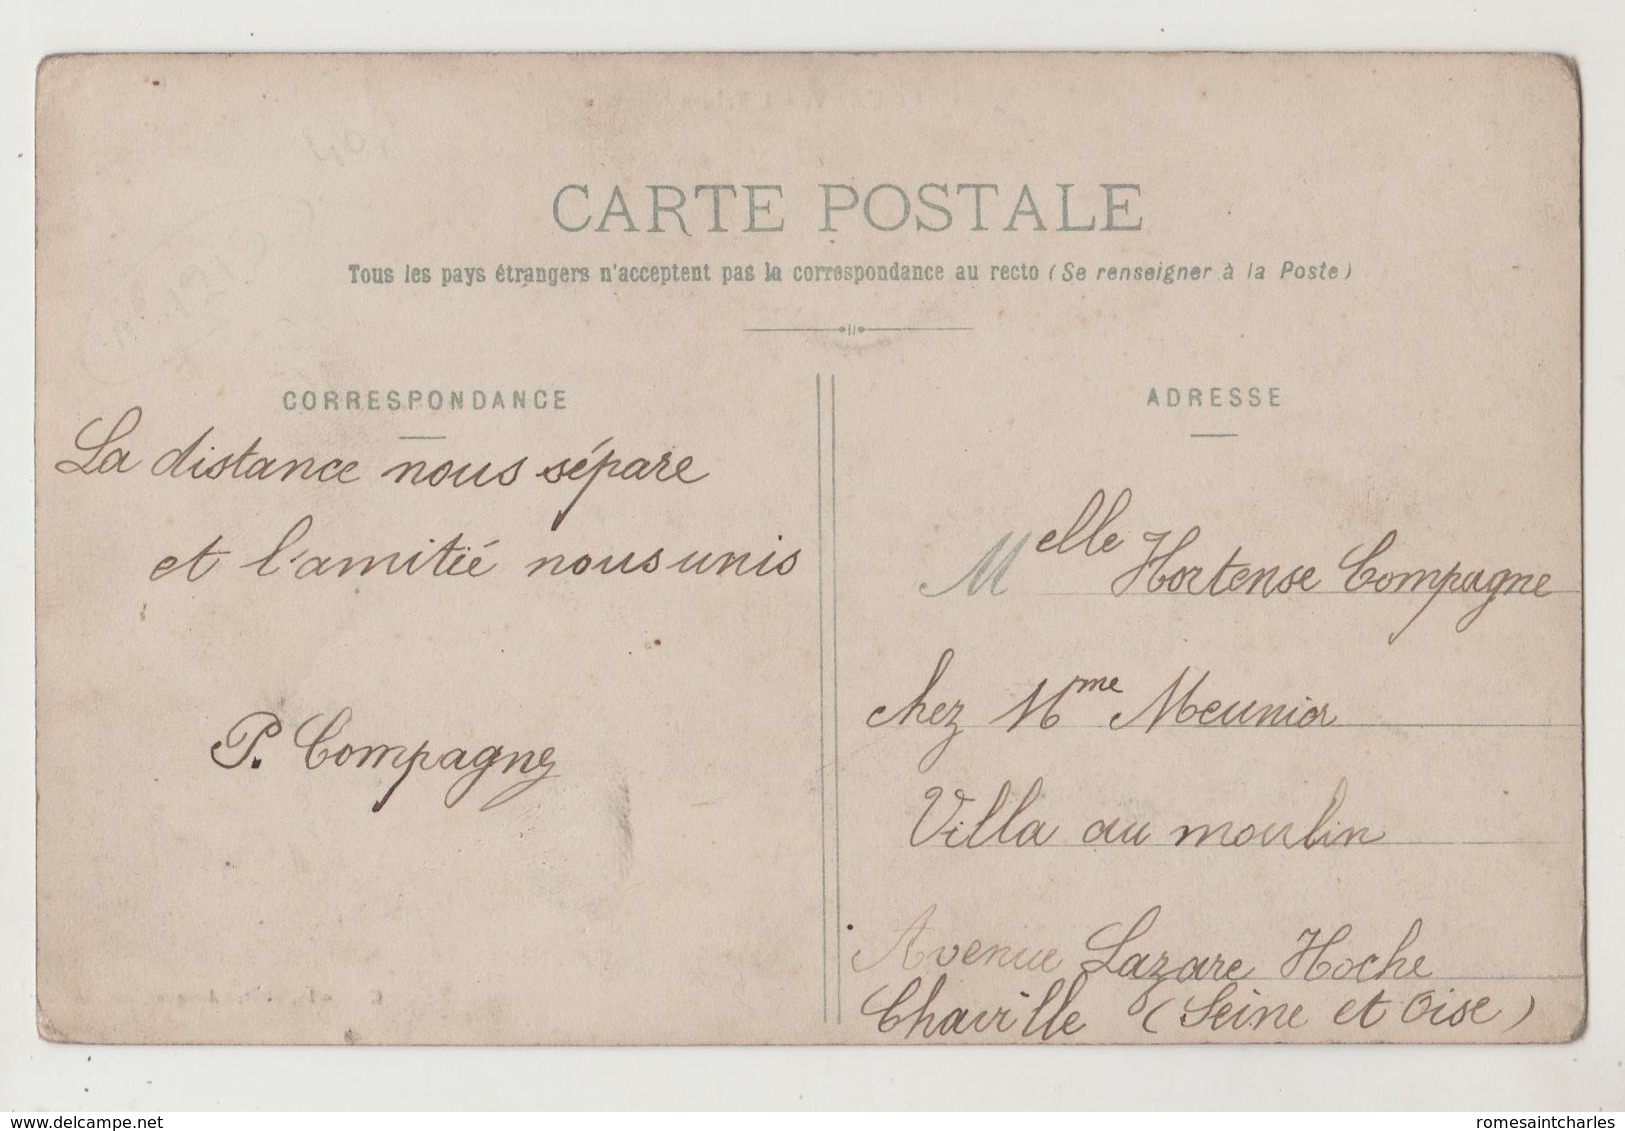 CARTE POSTALE
Tous les pays étrangers n'acceptent pas la correspondance au recto (Se renseigner à la Poste)
CORRESPONDANCE
La distance nous sépare
et l'amitié nous unis
P. Compagne
ADRESSE
Melle Hortense Compagne
chez Mme Meunier
Villa au moulin
Avenue Lazare Hoche
Chaville (Seine et Oise)
www.delcampe.net
romesaintcharles